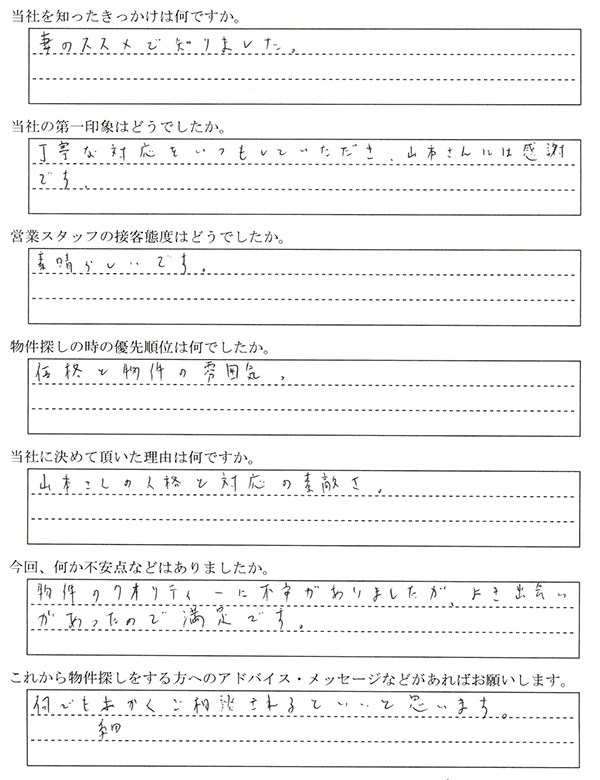 当社を知ったきっかけは何ですか。
妻のススメで知りました。
当社の第一印象はどうでしたか。
丁寧な対応をいつもしていただき、山本さんには感謝
です。
営業スタッフの接客態度はどうでしたか。
素晴らしいです。
物件探しの時の優先順位は何でしたか。
価格と物件の雰囲気。
当社に決めて頂いた理由は何ですか。
山本さんの人格と対応の素敵さ。
今回、何か不安点などはありましたか。
物件のクオリティーに不安がありましたが、よき出会い
があったので満足です。
これから物件探しをする方へのアドバイス・メッセージなどがあればお願いします。
何でもまかくご相談されるといいと思います。
細